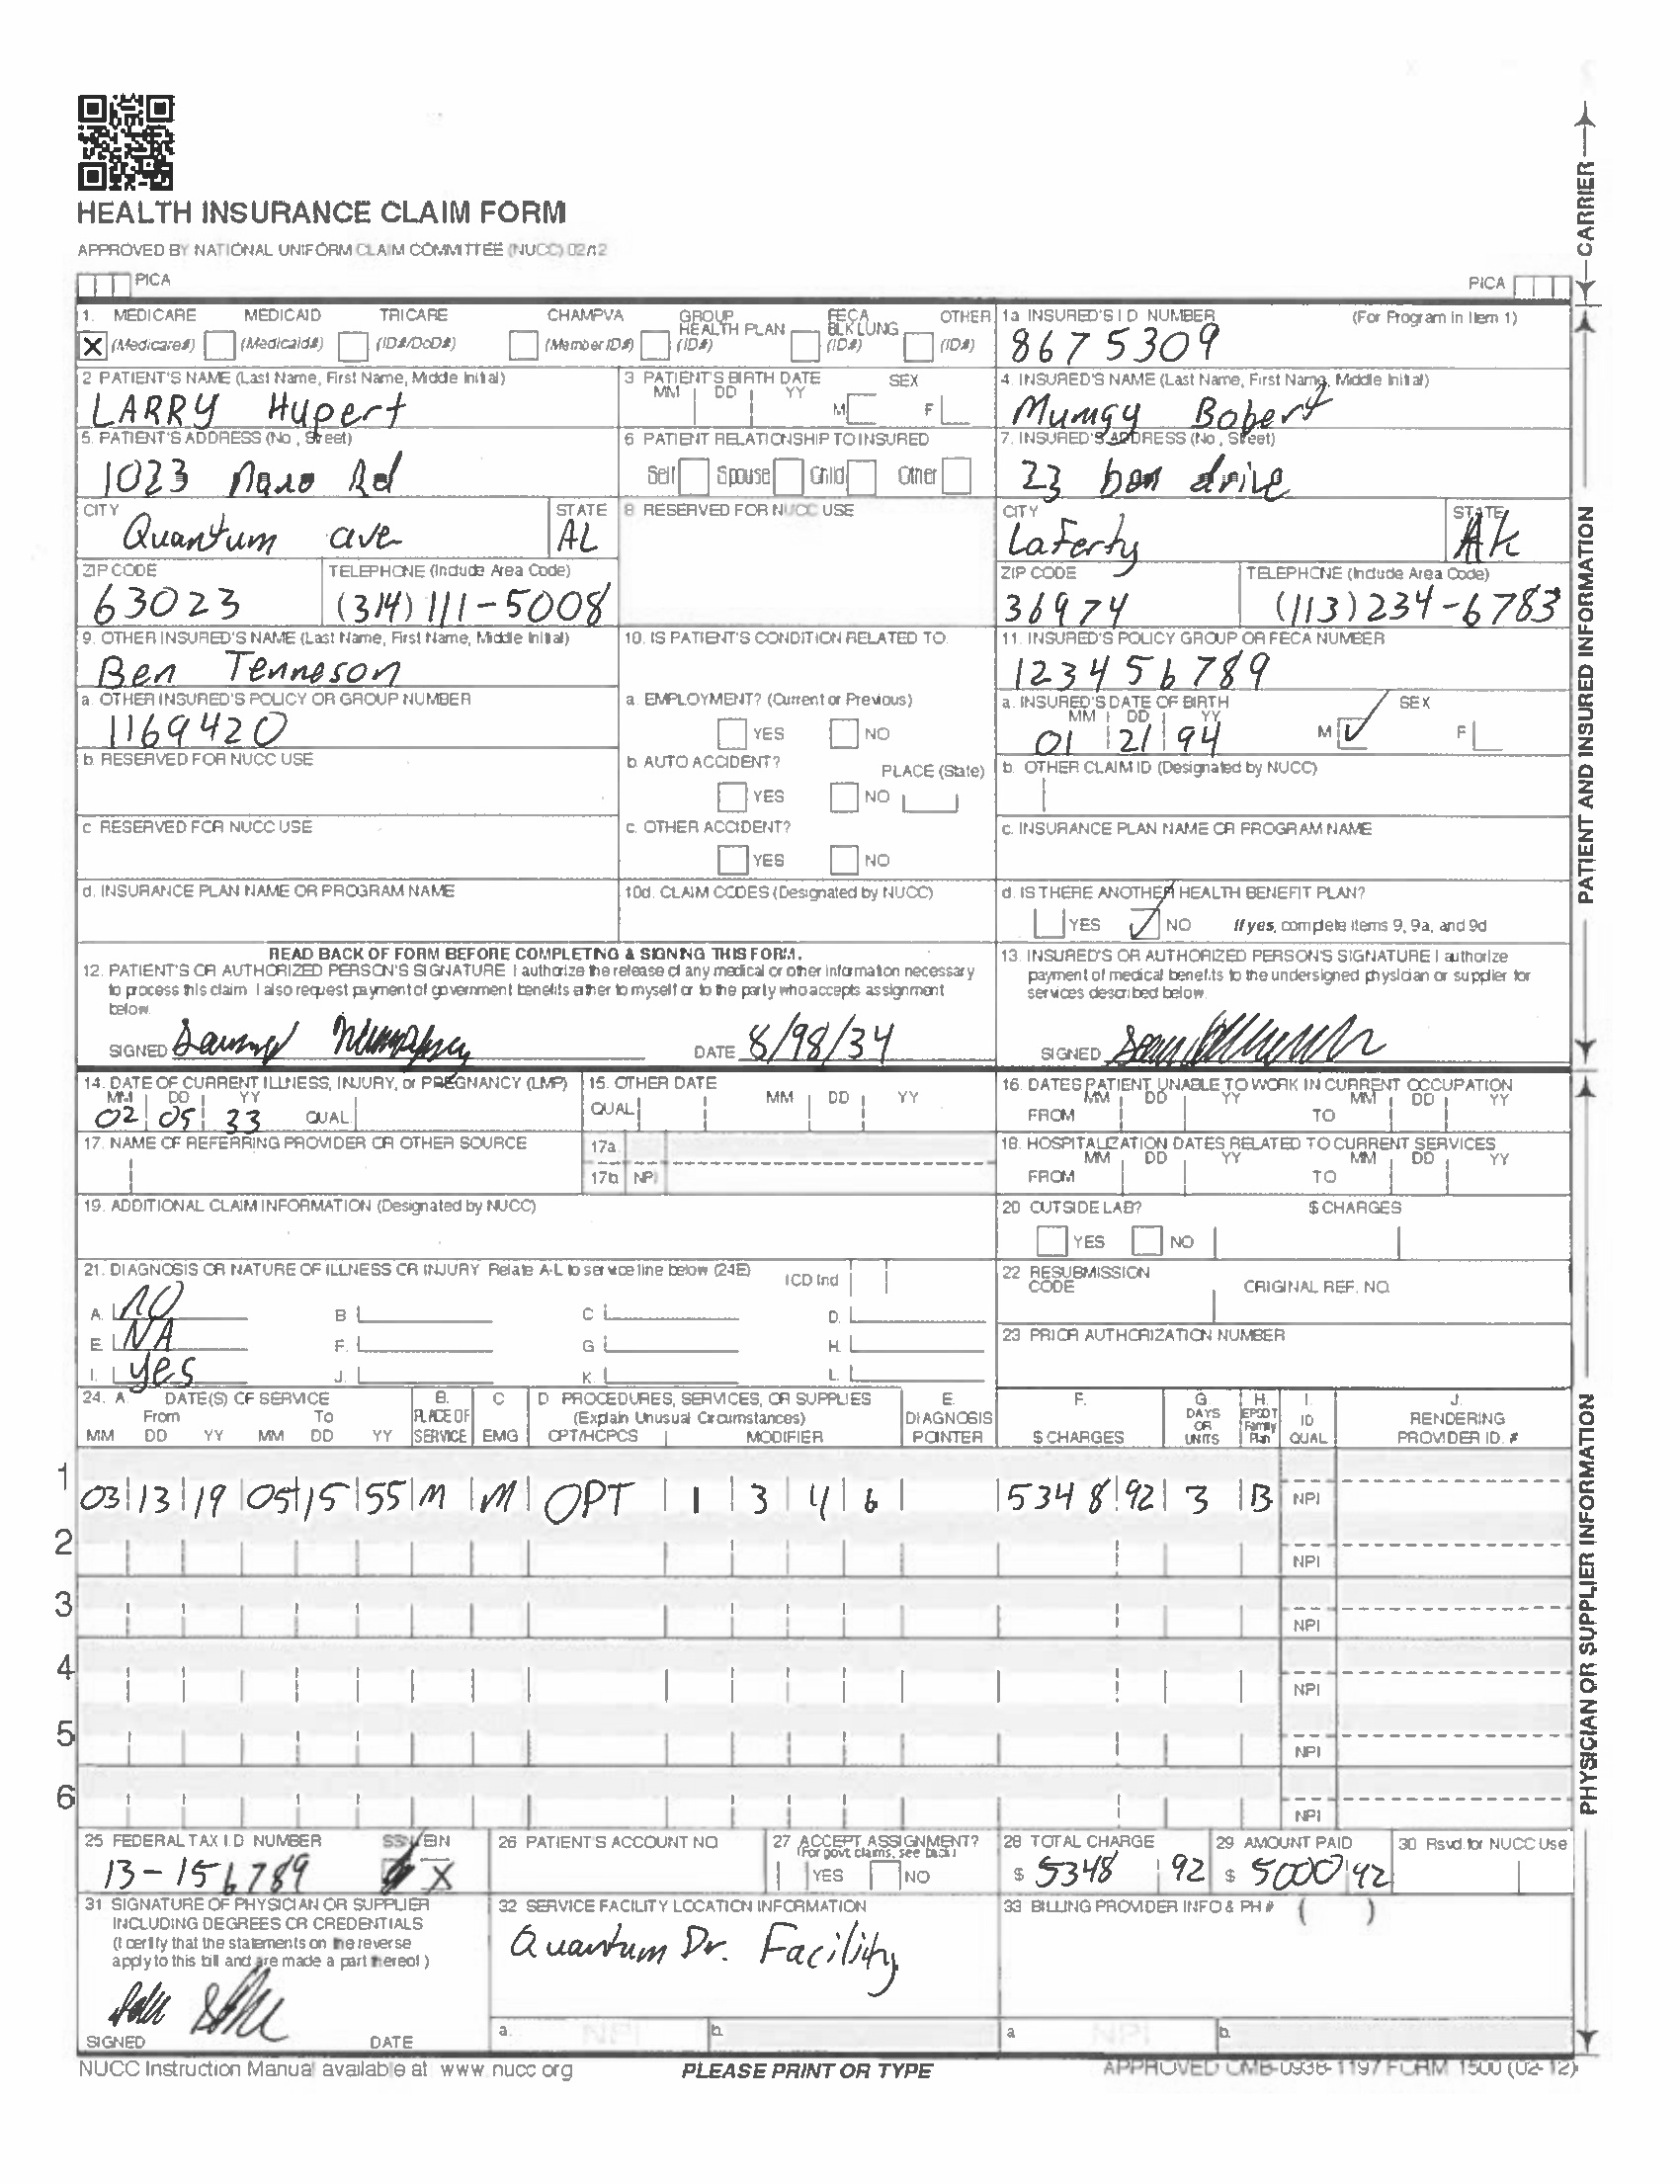 HEALTH INSURANCE CLAIM FORM
APPROVED BY NATIONAL UNIFORM CLAIM COMMITTEE (NUCC) 02/12
PICA PICA
CARRIER
1. MEDICARE MEDICAID TRICARE CHAMPVA GROUP HEALTH PLAN FECA BLK LUNG OTHER
X (Medicare#) (Medicaid#) (ID#/DoD#) (Member ID#) (ID#) (ID#) (ID#)
1a INSURED'S I D NUMBER (For Program in Item 1)
8675309
2 PATIENT'S NAME (Last Name, First Name, Middle Initial)
LARRY Hupert
3 PATIENT'S BIRTH DATE SEX
MM DD YY M F
4. INSURED'S NAME (Last Name, First Name, Middle Initial)
Mumgy Bobert
5. PATIENT'S ADDRESS (No , Street)
1023 Rd
6 PATIENT RELATIONSHIP TO INSURED
Self Spouse Child Other
7. INSURED'S ADDRESS (No , Street)
23 drive
CITY STATE
Quantum ave AL
8 RESERVED FOR NUCC USE
CITY STATE
Laferty AK
ZIP CODE TELEPHONE (Include Area Code)
63023 (314) 111-5008
ZIP CODE TELEPHONE (Include Area Code)
36974 (113) 234-6783
9. OTHER INSURED'S NAME (Last Name, First Name, Middle Initial)
Ben Tenneson
10. IS PATIENT'S CONDITION RELATED TO
11. INSURED'S POLICY GROUP OR FECA NUMBER
123456789
a. OTHER INSURED'S POLICY OR GROUP NUMBER
1169420
a. EMPLOYMENT? (Current or Previous)
YES NO
a. INSURED'S DATE OF BIRTH SEX
MM DD YY
01 21 94 M F
b. RESERVED FOR NUCC USE
b. AUTO ACCIDENT? PLACE (State)
YES NO
b. OTHER CLAIM ID (Designated by NUCC)
c RESERVED FOR NUCC USE
c. OTHER ACCIDENT?
YES NO
c. INSURANCE PLAN NAME OR PROGRAM NAME
d. INSURANCE PLAN NAME OR PROGRAM NAME
10d. CLAIM CODES (Designated by NUCC)
d. IS THERE ANOTHER HEALTH BENEFIT PLAN?
YES NO If yes, complete items 9, 9a, and 9d
PATIENT AND INSURED INFORMATION
READ BACK OF FORM BEFORE COMPLETING & SIGNING THIS FORM.
12. PATIENT'S OR AUTHORIZED PERSON'S SIGNATURE I authorize the release of any medical or other information necessary
to process this claim I also request payment of government benefits either to myself or to the party who accepts assignment
below.
SIGNED DATE 8/98/34
13. INSURED'S OR AUTHORIZED PERSON'S SIGNATURE I authorize
payment of medical benefits to the undersigned physician or supplier for
services described below.
SIGNED
14. DATE OF CURRENT ILLNESS, INJURY, or PREGNANCY (LMP)
MM DD YY
02 05 33 QUAL
15. OTHER DATE
QUAL MM DD YY
16. DATES PATIENT UNABLE TO WORK IN CURRENT OCCUPATION
MM DD YY MM DD YY
FROM TO
17. NAME OF REFERRING PROVIDER OR OTHER SOURCE
17a
17b NPI
18. HOSPITALIZATION DATES RELATED TO CURRENT SERVICES
MM DD YY MM DD YY
FROM TO
19. ADDITIONAL CLAIM INFORMATION (Designated by NUCC)
20 OUTSIDE LAB? $ CHARGES
YES NO
21. DIAGNOSIS OR NATURE OF ILLNESS OR INJURY Relate A-L to service line below (24E) ICD Ind
A. NO B C D.
E NA F. G H.
I. yes J. K. L.
22 RESUBMISSION CODE ORIGINAL REF. NO.
23 PRIOR AUTHORIZATION NUMBER
24. A DATE(S) OF SERVICE B. C D PROCEDURES, SERVICES, OR SUPPLIES E. F. G. H. I. J.
From To PLACE OF SERVICE EMG (Explain Unusual Circumstances) DIAGNOSIS POINTER $ CHARGES DAYS OR UNITS EPSDT Family Plan ID QUAL RENDERING PROVIDER ID. #
MM DD YY MM DD YY CPT/HCPCS MODIFIER
1 03 13 19 05 15 55 M M OPT 1 3 4 6 5348 92 3 B NPI
2 NPI
3 NPI
4 NPI
5 NPI
6 NPI
25 FEDERAL TAX I.D NUMBER SSN EIN
13-156789 X
26 PATIENT'S ACCOUNT NO
27 ACCEPT ASSIGNMENT?
(For govt claims, see back)
YES NO
28 TOTAL CHARGE
$ 5348 92
29 AMOUNT PAID
$ 5000 42
30 Rsvd. for NUCC Use
31 SIGNATURE OF PHYSICIAN OR SUPPLIER
INCLUDING DEGREES OR CREDENTIALS
(I certify that the statements on the reverse
apply to this bill and are made a part thereof )
SIGNED DATE
32 SERVICE FACILITY LOCATION INFORMATION
Quantum Dr. Facility
a. NPI b.
33 BILLING PROVIDER INFO & PH # ( )
a NPI b.
PHYSICIAN OR SUPPLIER INFORMATION
NUCC Instruction Manual available at www nucc org PLEASE PRINT OR TYPE APPROVED OMB-0938-1197 FORM 1500 (02-12)